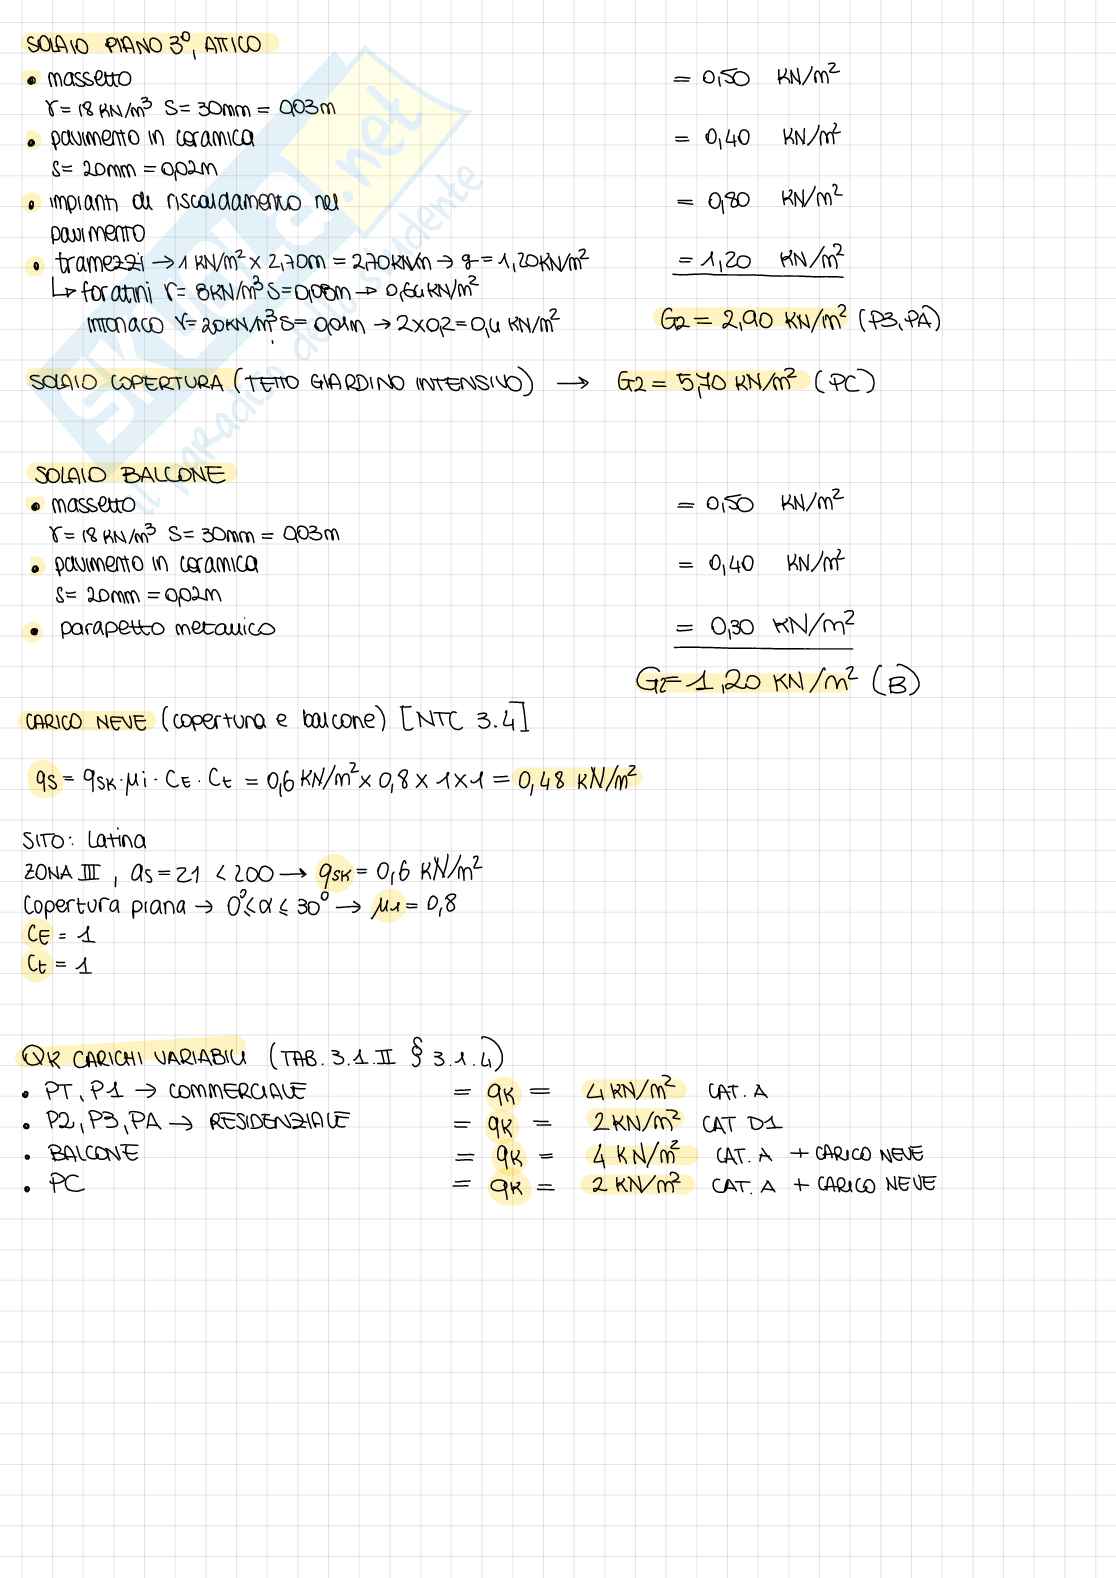 SOLAIO PIANO 3°, ATTICO
• massetto = 0,50 KN/m²
γ = 18 KN/m³ S = 30mm = 0,03m
• pavimento in ceramica = 0,40 KN/m²
S = 20mm = 0,02m
• impianti di riscaldamento nel = 0,80 KN/m²
pavimento
• tramezzi → 1 KN/m² × 2,70m = 2,70KN/m → g = 1,20KN/m² = 1,20 KN/m²
↳ foratini γ = 8KN/m³ S=0,08m → 0,64KN/m²
intonaco γ = 20KN/m³ S = 0,01m → 2×0,2 = 0,4 KN/m² G2 = 2,90 KN/m² (P3, PA)
SOLAIO COPERTURA (TETTO GIARDINO INTENSIVO) → G2 = 5,70 KN/m² (PC)
SOLAIO BALCONE
• massetto = 0,50 KN/m²
γ = 18 KN/m³ S = 30mm = 0,03m
• pavimento in ceramica = 0,40 KN/m²
S = 20mm = 0,02m
• parapetto metallico = 0,30 KN/m²
G2 = 1,20 KN/m² (B)
CARICO NEVE (copertura e balcone) [NTC 3.4]
qs = qsk · μi · CE · Ct = 0,6 KN/m² × 0,8 × 1 × 1 = 0,48 KN/m²
SITO: Latina
ZONA III, as = 21 < 200 → qsk = 0,6 KN/m²
Copertura piana → 0° ≤ α ≤ 30° → μ1 = 0,8
CE = 1
Ct = 1
QK CARICHI VARIABILI (TAB. 3.1.II § 3.1.4)
• PT, P1 → COMMERCIALE = qk = 4 KN/m² CAT. A
• P2, P3, PA → RESIDENZIALE = qk = 2 KN/m² CAT D1
• BALCONE = qk = 4 KN/m² CAT. A + CARICO NEVE
• PC = qk = 2 KN/m² CAT. A + CARICO NEVE
skuola.net
il paradiso dello studente